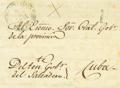 Al Exmo. Sor. Gral. Gobr.
de la provincia
Del ten. Gobr.
del Saltadero
Cuba